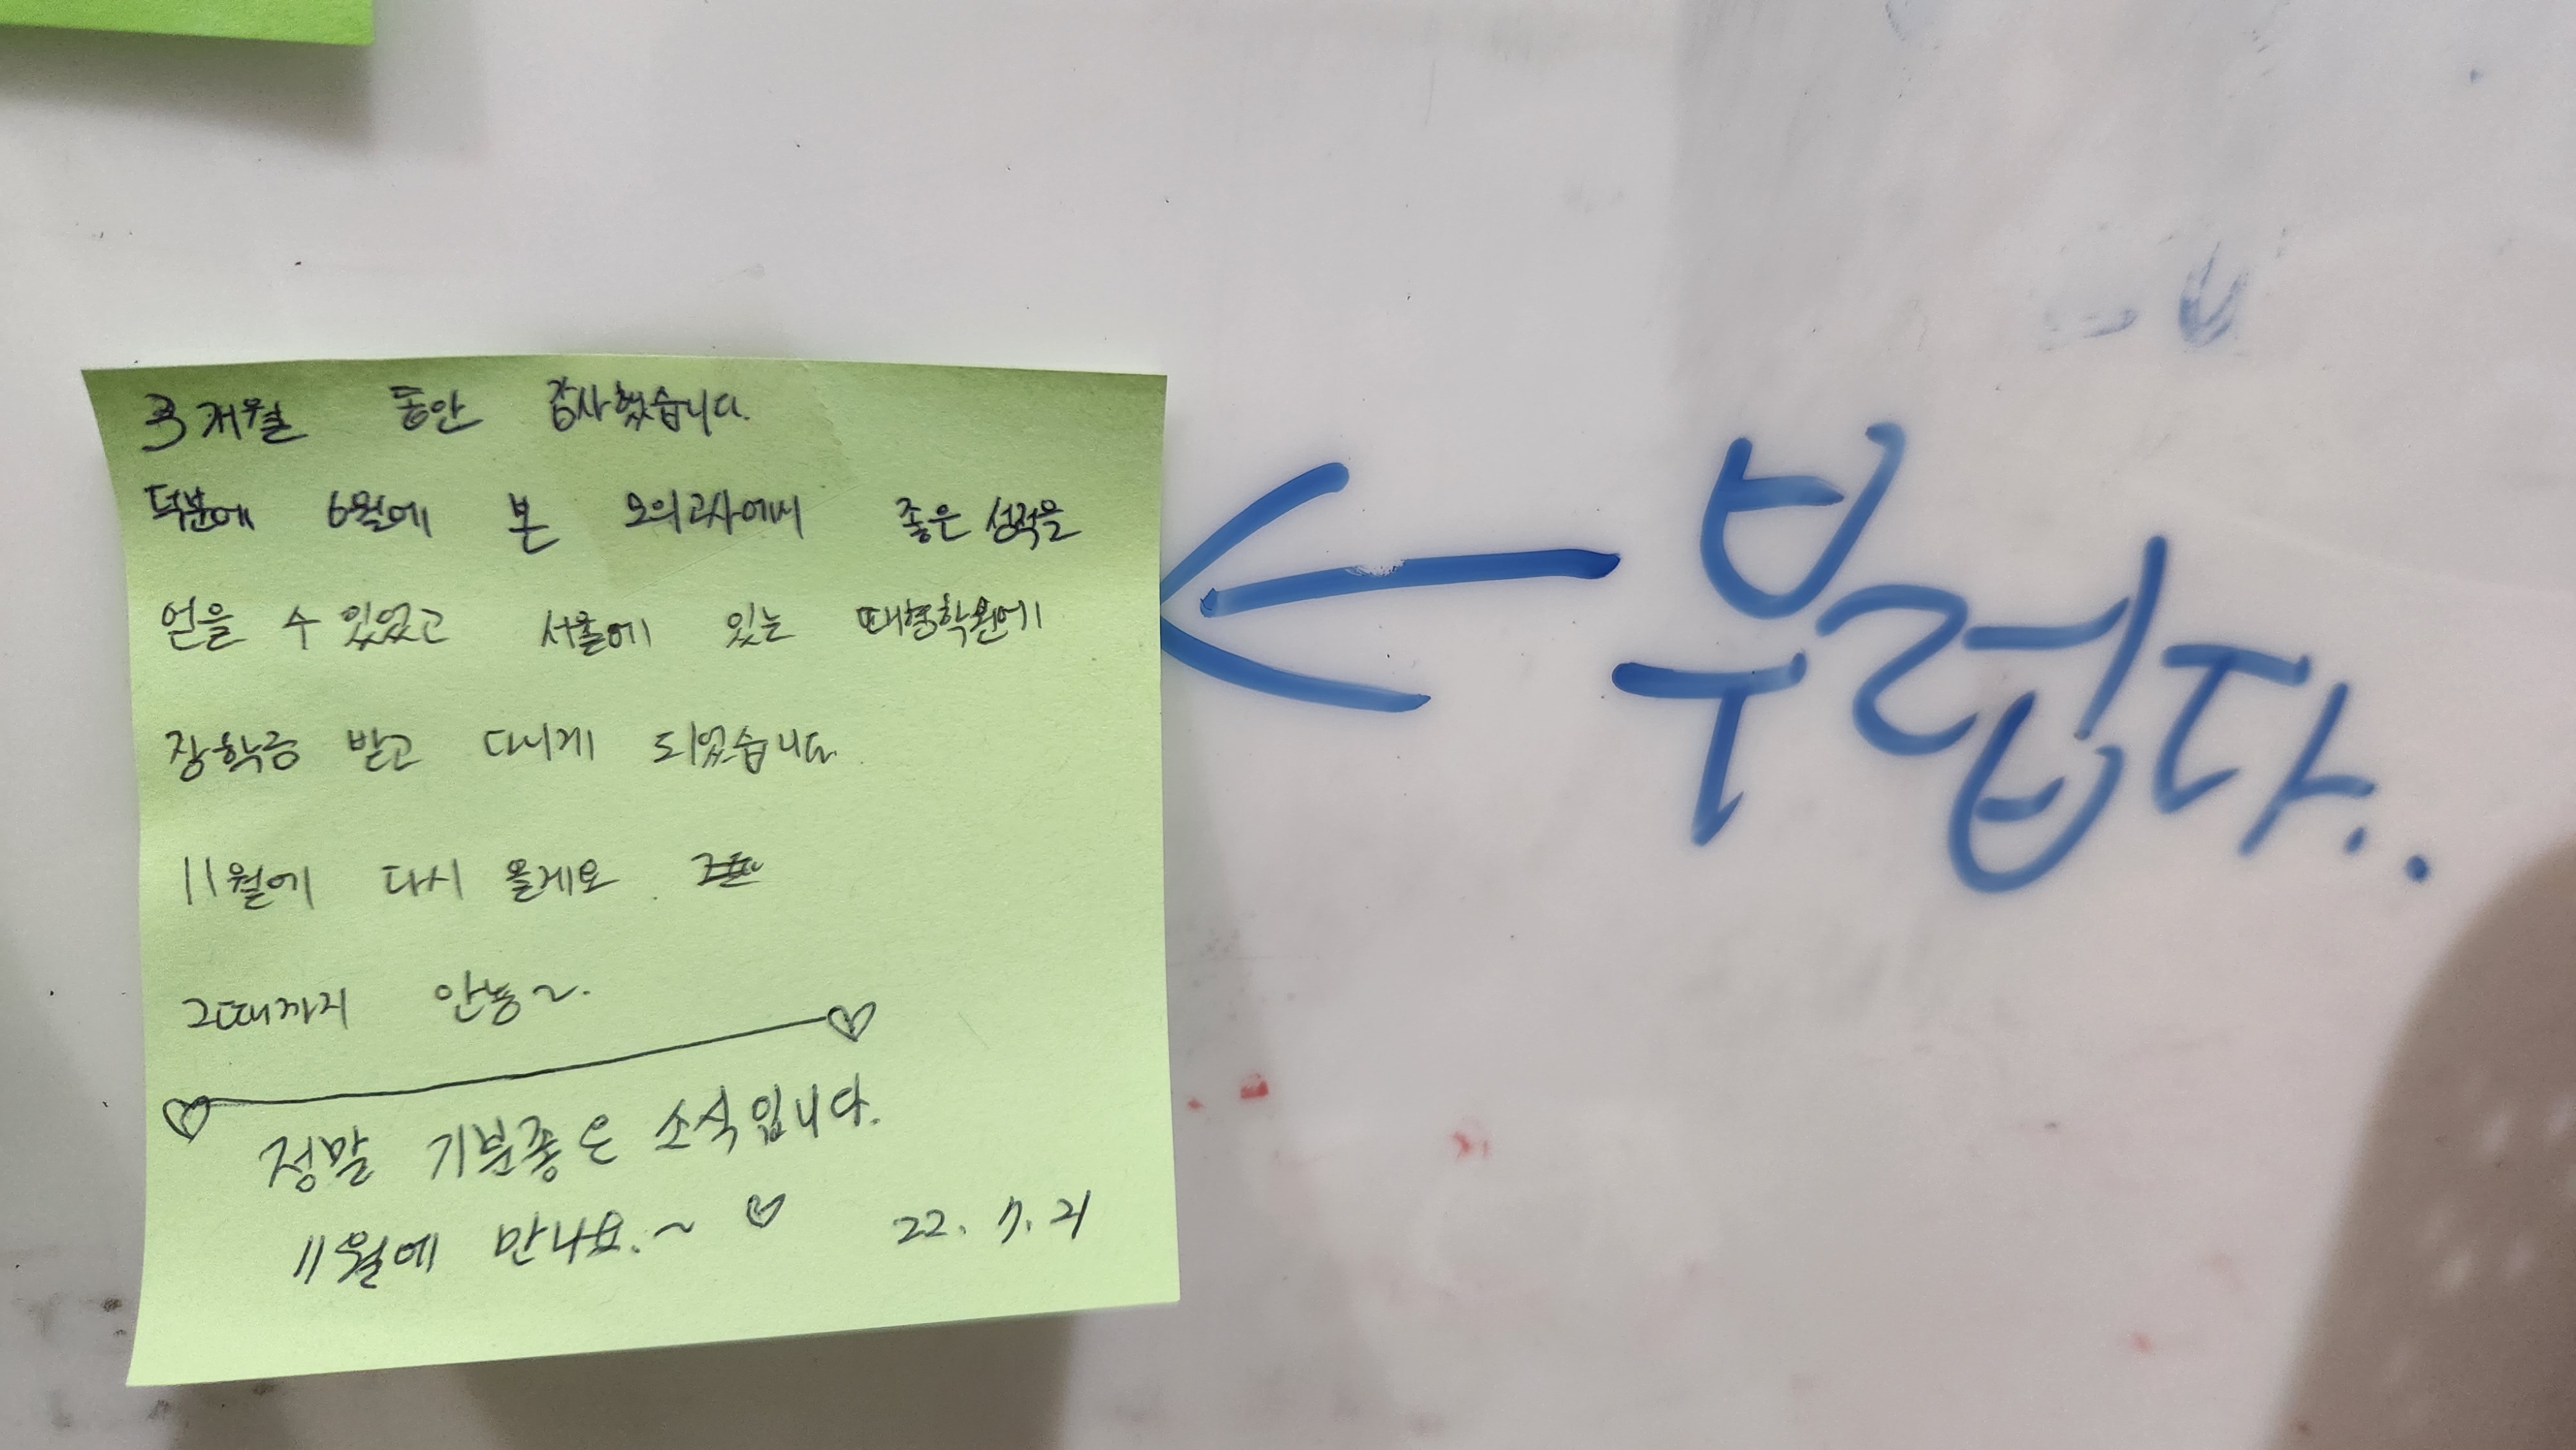 3개월 동안 감사했습니다.
덕분에 6월에 본 모의고사에서 좋은 성적을
얻을 수 있었고 서울에 있는 대형학원에
장학금 받고 다니게 되었습니다.
11월에 다시 올게요.
그때까지 안뇽~.
정말 기분좋은 소식입니다.
11월에 만나요.~ ♡ 22. 7. 21
← 부럽다..